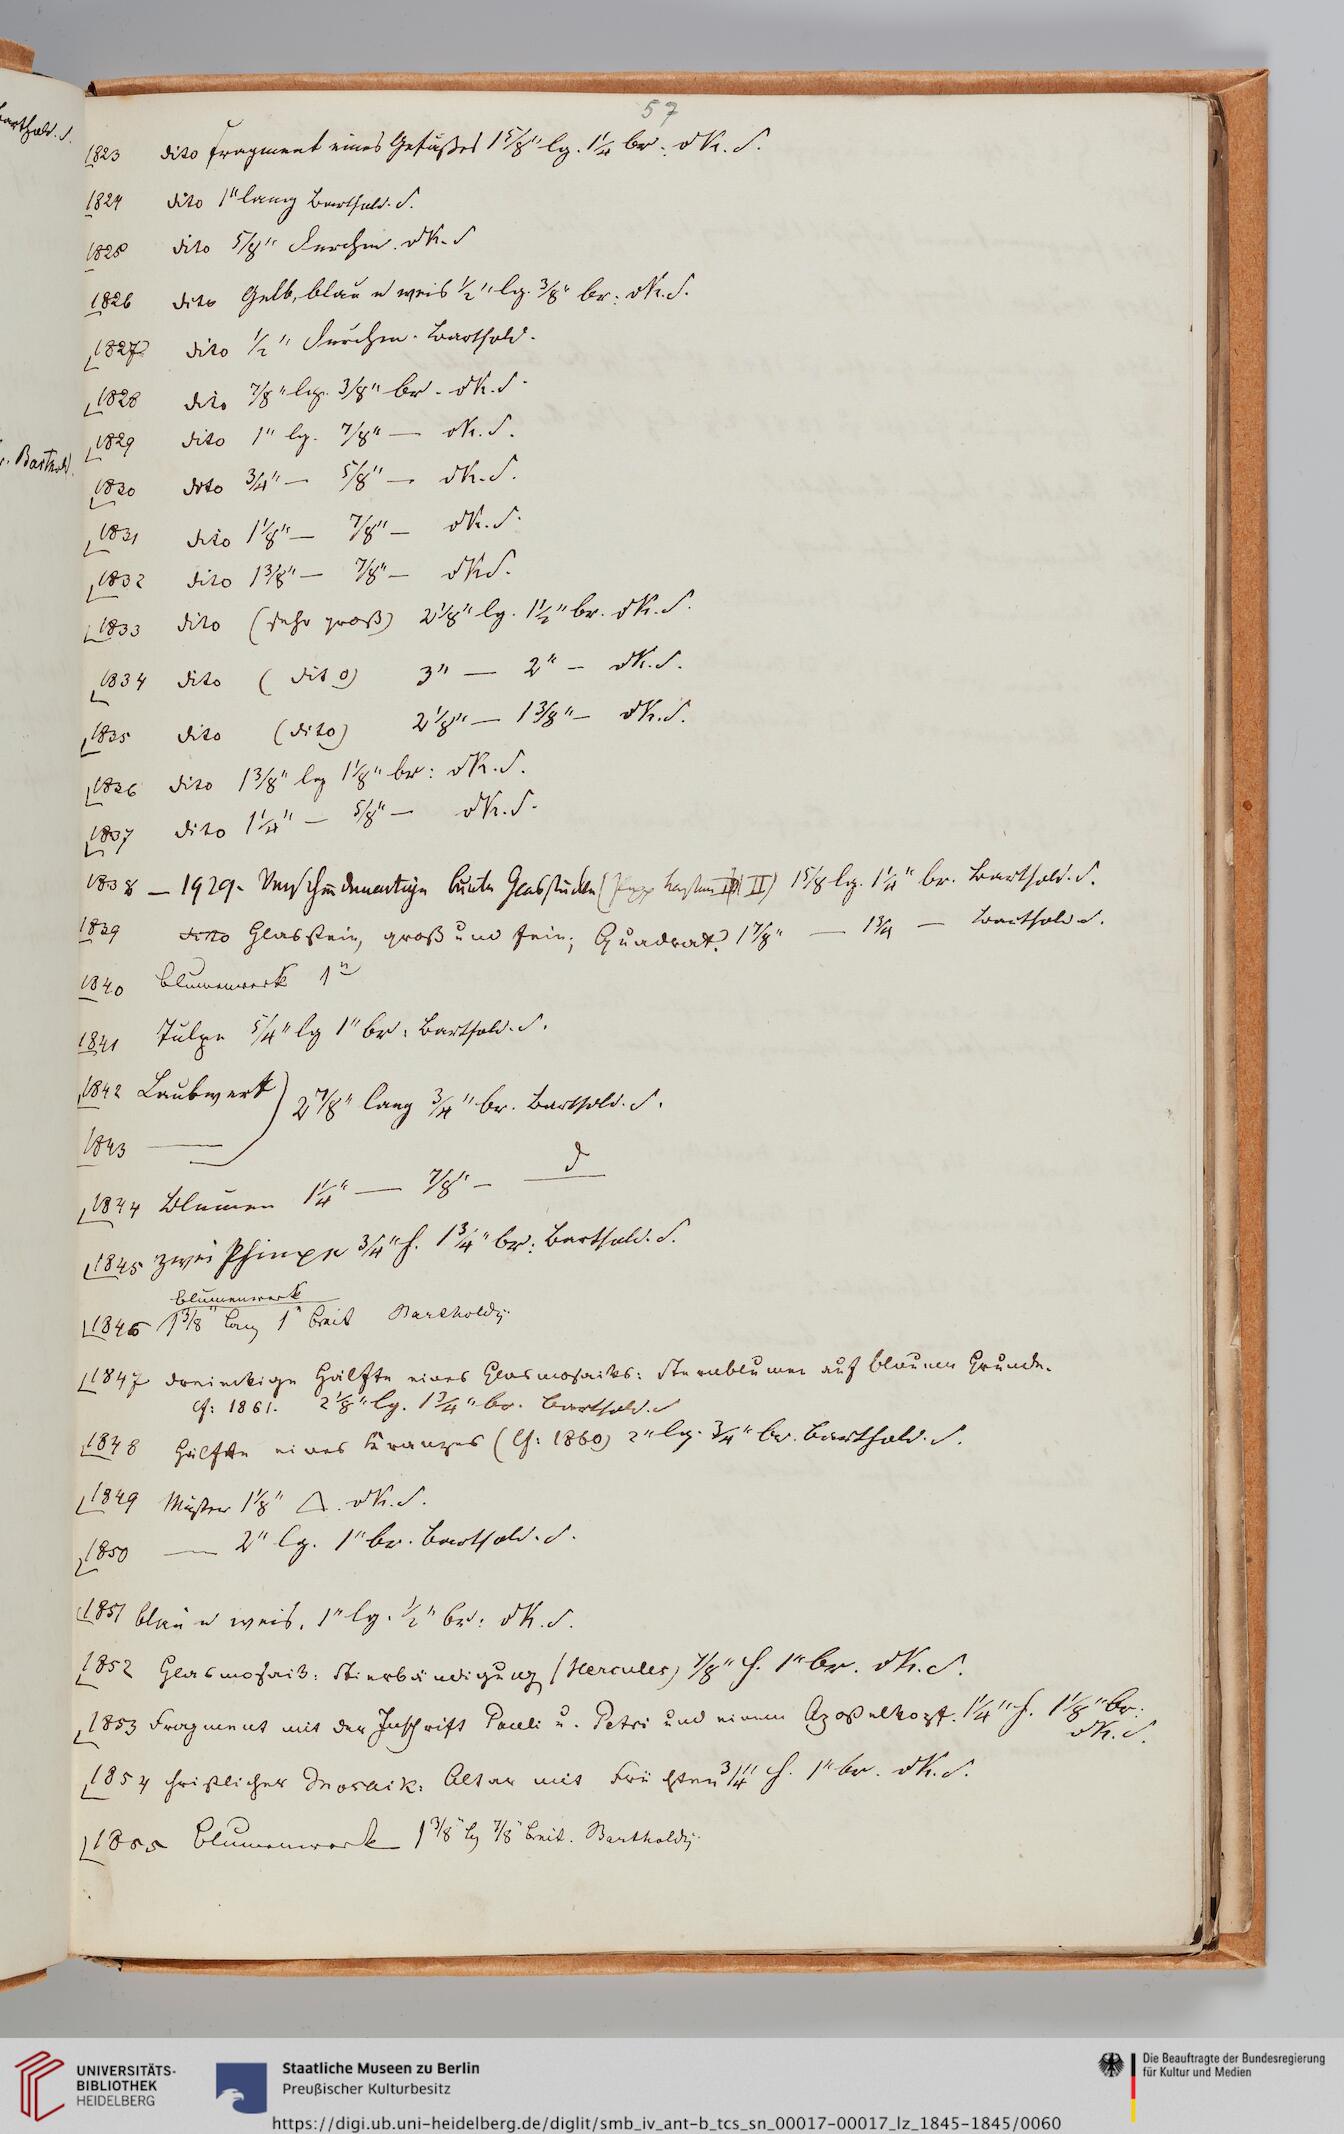 Barthold. S.
r. Barthold
57
1823 dito Fragment eines Gefäßes 1 5/8" lg. 1 1/4 br: d K. S.
1824 dito 1" lang Barthold. S.
1825 dito 5/8" Durchm. d K. S
1826 dito Gelb, blau u weis 1/2" lg. 3/8" br: d K. S.
1827 dito 1/2" Durchm. Barthold.
1828 dito 7/8" lg. 3/8" br. d K. S.
1829 dito 1" lg. 7/8" — d K. S.
1830 dito 3/4" — 5/8" — d K. S.
1831 dito 1 1/8" — 7/8" — d K. S.
1832 dito 1 3/8" — 7/8" — d K S.
1833 dito (sehr groß) 2 1/8" lg. 1 1/2" br. d K. S.
1834 dito (dito) 3" — 2" — d K. S.
1835 dito (dito) 2 1/8" — 1 3/8" — d K. S.
1836 dito 1 3/8" lg 1 1/8" br: d K. S.
1837 dito 1 1/4" — 5/8" — d K. S.
1838 — 1929. Verschiedenartige bunte Glasstücke ( II) 1 5/8 lg. 1 1/4" br. Barthold. S.
1839 dito Glasstein, groß und fein; Quadrat? 1 7/8" — 1 3/4 — Barthold S.
1840 Blumenwerk 1"
1841 Tulpe 5/4" lg 1" br: Barthold. S.
1842 Laubwerk ) 2 7/8" lang 3/4" br. Barthold. S.
1843 ——
1844 Blumen 1 1/4" — 7/8" — d
1845 zwei Phinxe 3/4" h. 1 3/4" br: Barthold. S.
Blumenwerk
1846 1 3/8" lang 1" breit Bartholdy
1847 dreieckige Hälfte eines Glasmosaiks: Sternblumen auf blauem Grunde.
cf: 1861. 2 1/8" lg. 1 3/4" br. Barthold. S
1848 Hälfte eines Kranzes (cf: 1860) 2" lg. 3/4" br. Barthold. S.
1849 Muster 1 1/8" △. d K. S.
1850 —— 2" lg. 1" br. Barthold. S.
1851 blau u weis. 1" lg. 1/2" br: d K. S.
1852 Glasmosaik: Stierbändigung (Hercules) 7/8" h. 1" br. d K. S.
1853 Fragment mit der Inschrift Pauli u. Petri und einem Apostelkopf. 1 1/4" h. 1 1/8" br:
d K. S.
1854 christlicher Mosaik: Altar mit Früchten 3/4" h. 1" br. d K. S.
1855 Blumenwerk 1 3/8" lg 7/8" breit. Bartholdy
UNIVERSITÄTS-
BIBLIOTHEK
HEIDELBERG
Staatliche Museen zu Berlin
Preußischer Kulturbesitz
Die Beauftragte der Bundesregierung
für Kultur und Medien
https://digi.ub.uni-heidelberg.de/diglit/smb_iv_ant-b_tcs_sn_00017-00017_lz_1845-1845/0060